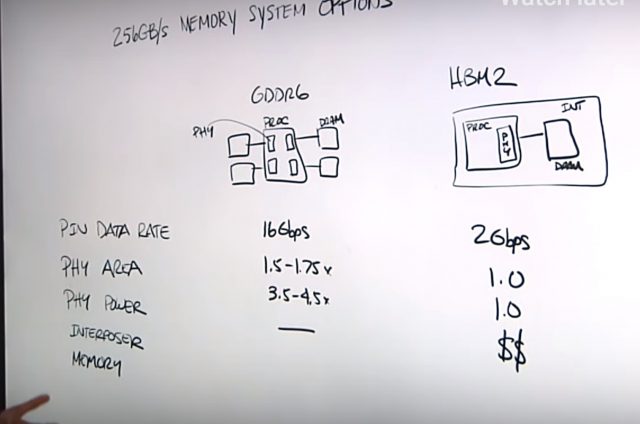 Watch later
256GB/s MEMORY SYSTEM OPTIONS
GDDR6
HBM2
PHY
PROC
DRAM
INT
PROC
PHY
DRAM
PIN DATA RATE 16Gbps 2Gbps
PHY AREA 1.5-1.75x 1.0
PHY POWER 3.5-4.5x 1.0
INTERPOSER — $$
MEMORY